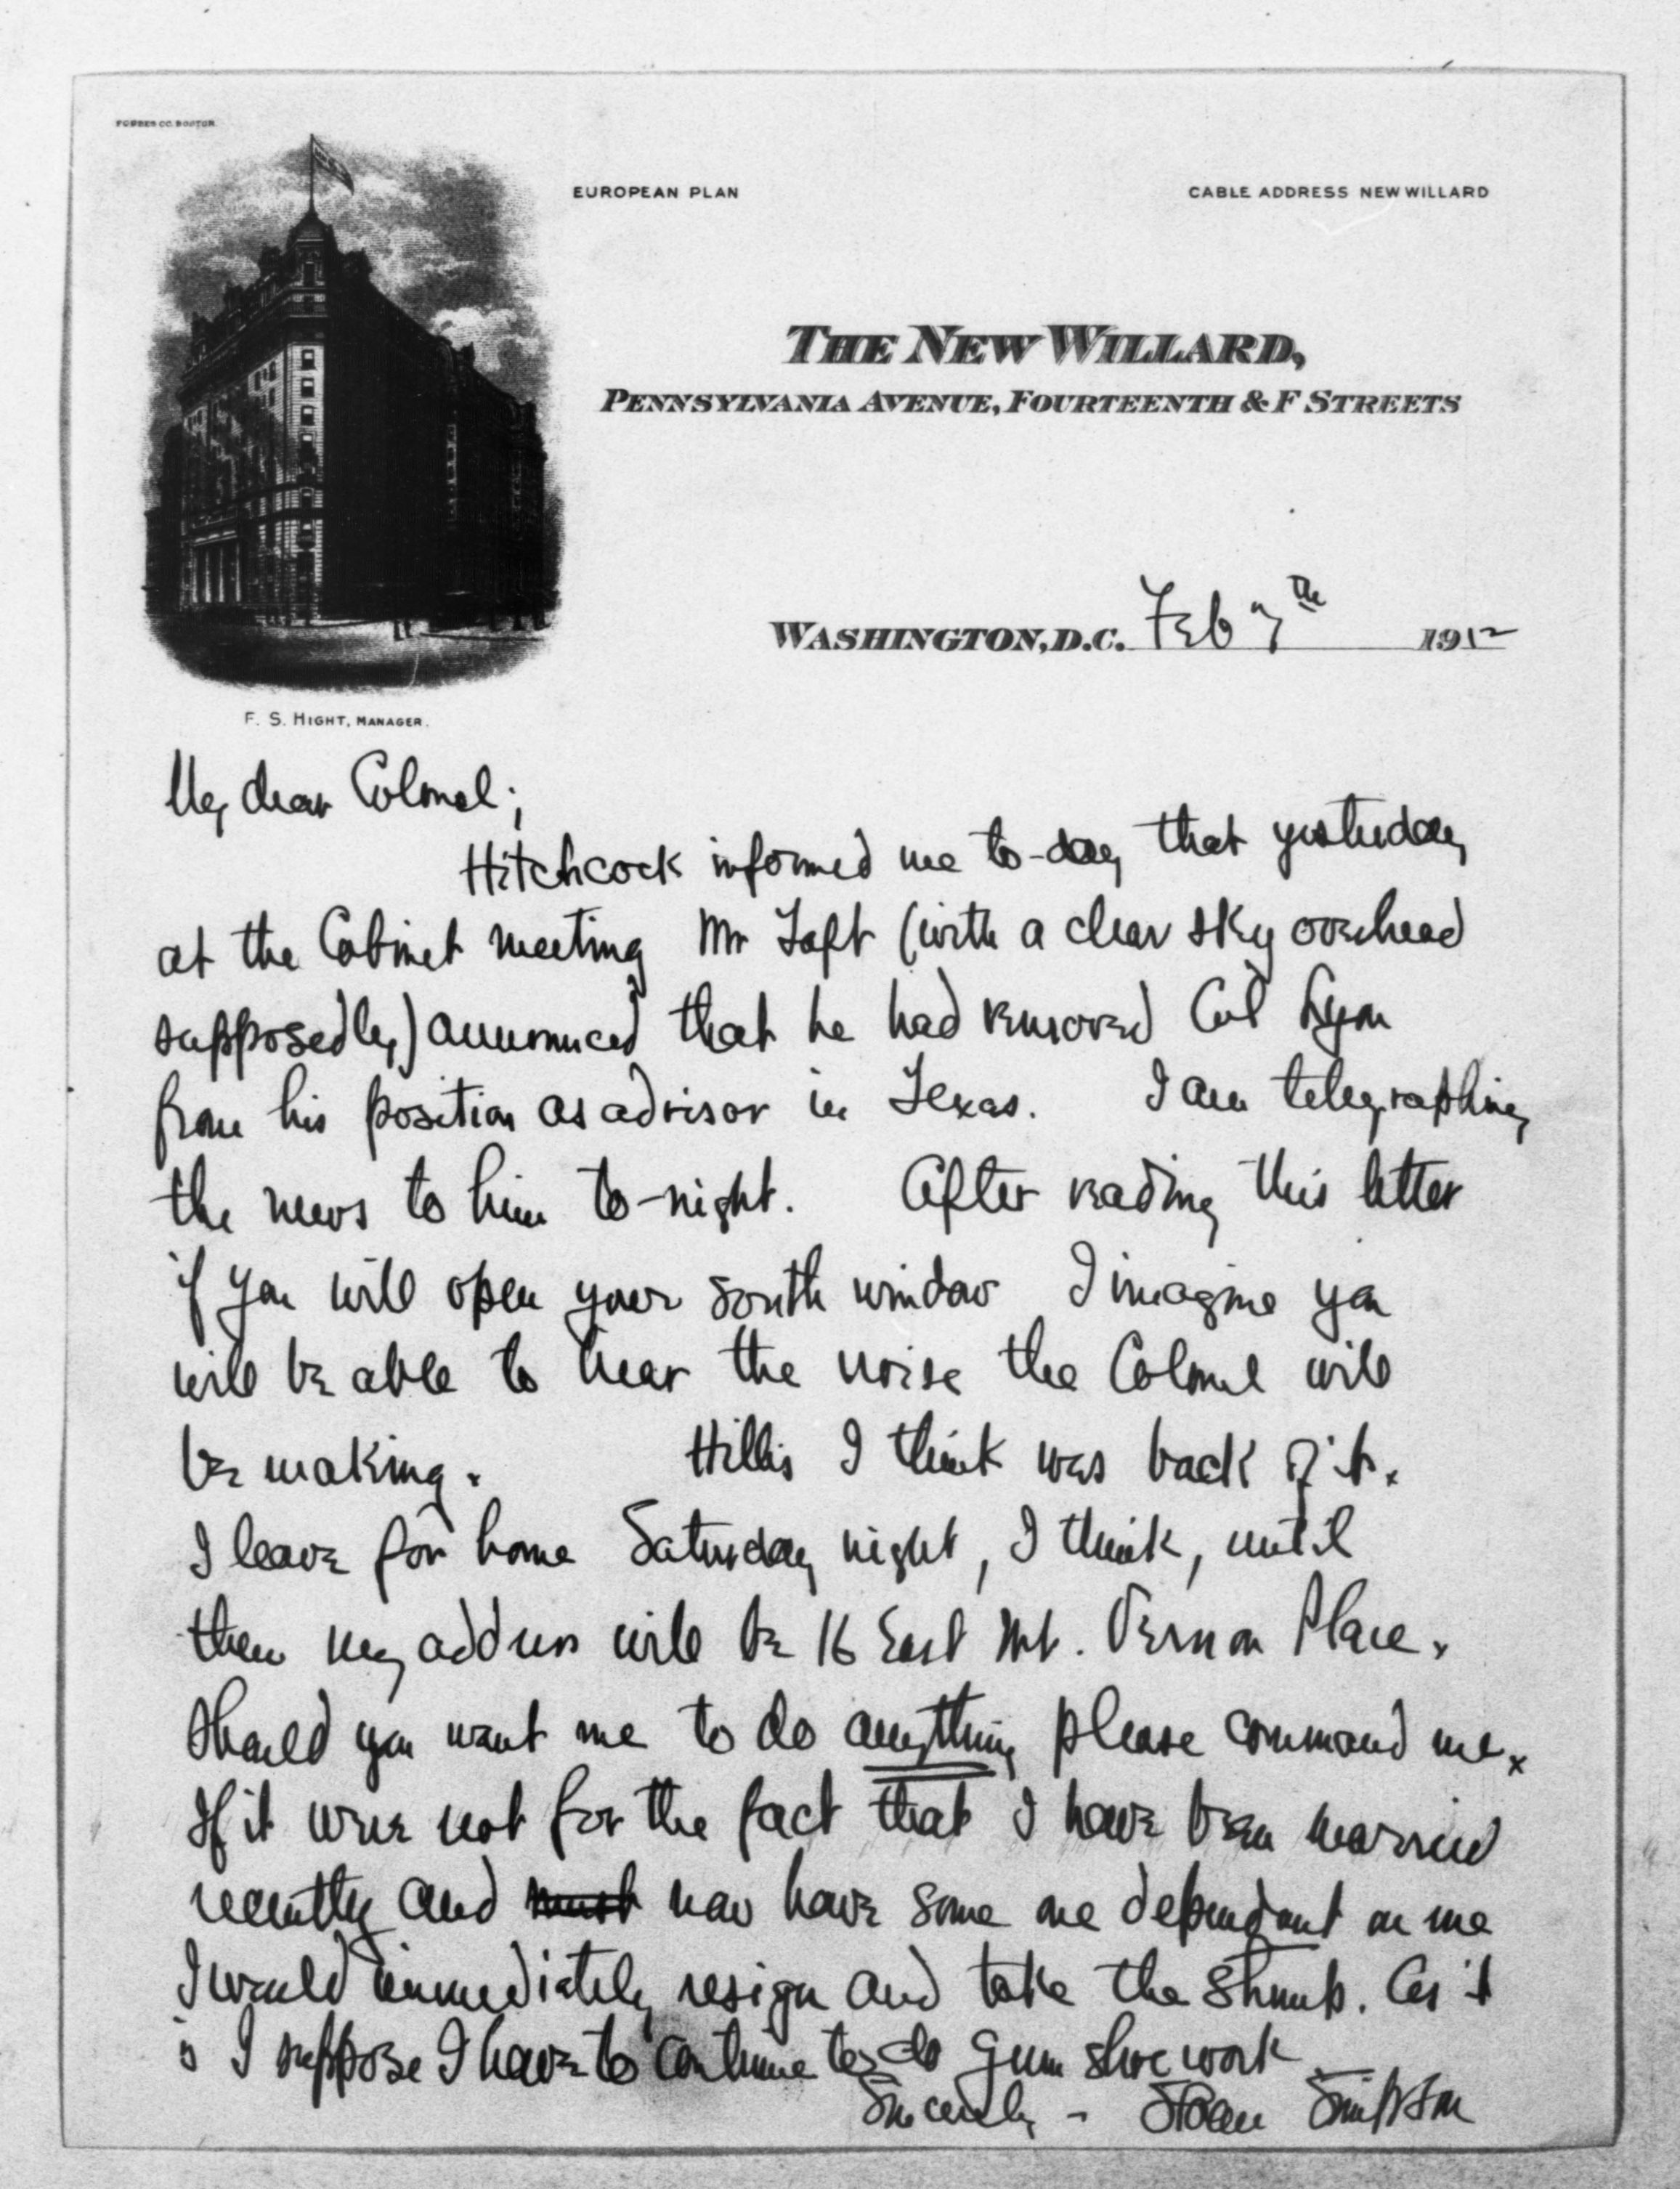 FORBES CO. BOSTON.
EUROPEAN PLAN
CABLE ADDRESS NEW WILLARD
THE NEW WILLARD,
PENNSYLVANIA AVENUE, FOURTEENTH & F STREETS
WASHINGTON, D.C. Feb 7th 1912
F. S. HIGHT, MANAGER.
My dear Colonel;
Hitchcock informed me to-day that yesterday
at the Cabinet meeting Mr Taft (with a clear sky overhead
supposedly) announced that he had removed Col Lyon
from his position as advisor in Texas. I am telegraphing
the news to him to-night. After reading this letter
if you will open your south window I imagine you
will be able to hear the noise the Colonel will
be making. Hilles I think was back of it.
I leave for home Saturday night, I think, until
then my address will be 16 East Mt. Vernon Place.
Should you want me to do anything please command me.
If it were not for the fact that I have been married
recently and must now have some one dependant on me
I would immediately resign and take the stump. As it
is I suppose I have to continue to do gum shoe work
Sincerely - Sloan Simpson